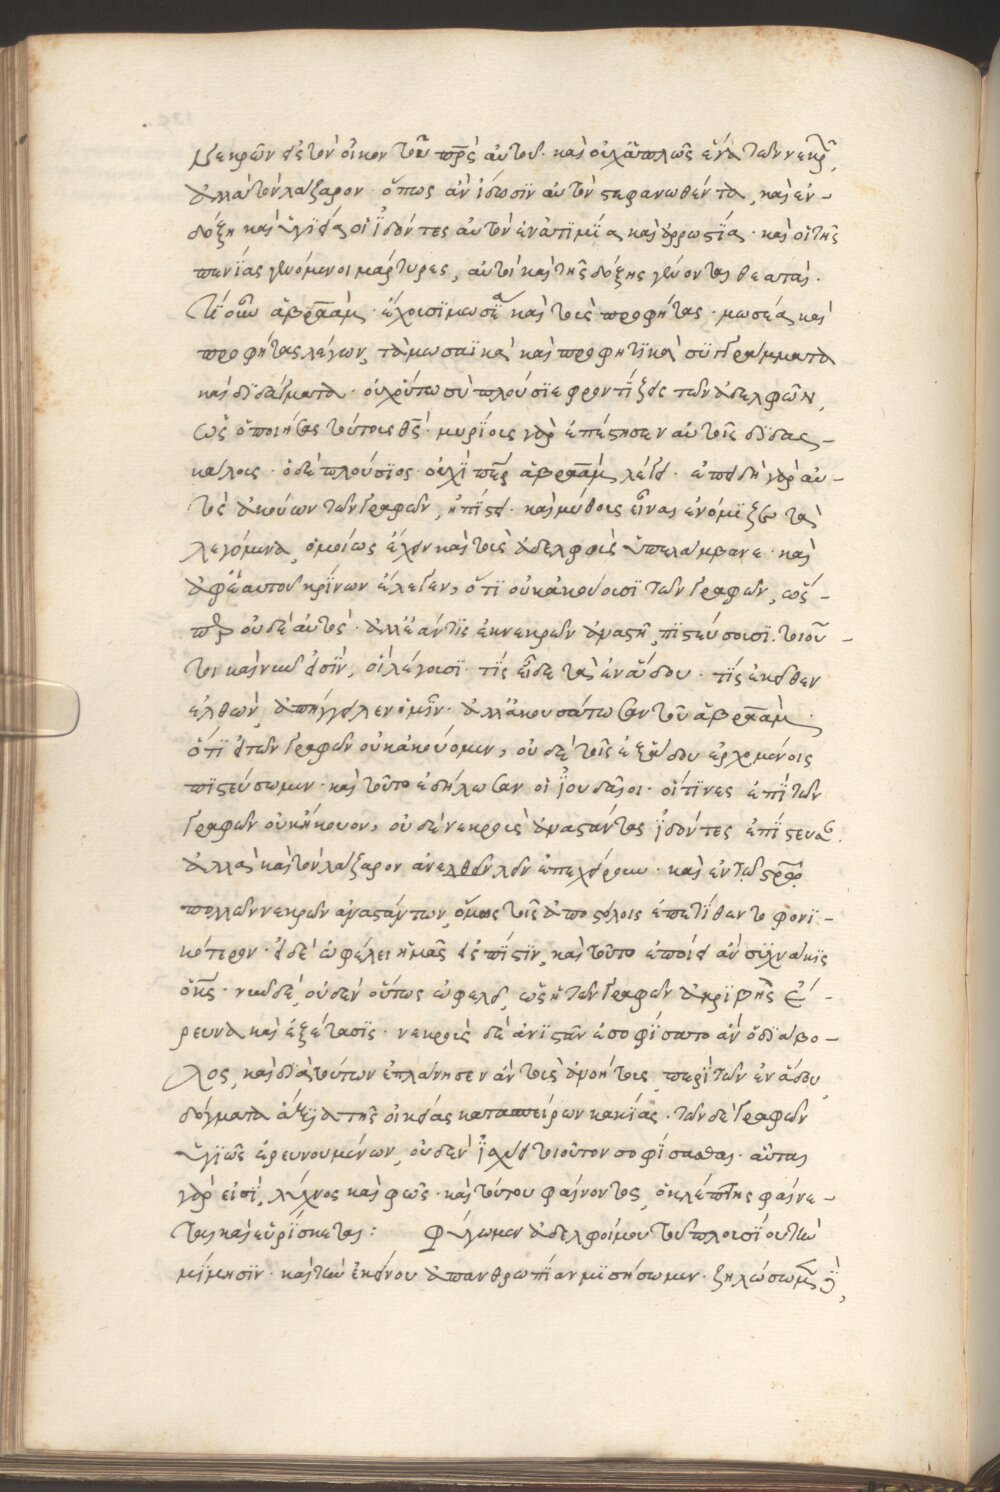 νεκρῶν εἰς τὸν οἶκον τοῦ πρς αὐτοῦ· καὶ οὐχ ἁπλῶς ἕνα τῶν νεκρῶν,
ἀλλὰ τὸν λάζαρον· ὅπως ἂν ἴδωσϊν αὐτὸν στεφανωθέντα, καὶ ἐν-
δόξῃ καὶ ὑγιείᾳ οἱ ἰδόντες αὐτὸν ἐν ἀτιμίᾳ καὶ ἀρρωστίᾳ· καὶ οἱ τῆς
πενίας γενόμενοι μάρτυρες, αὐτοὶ καὶ τῆς δόξης γένονται θεαταί·
Τί οὖν ἀβραὰμ· ἔχουσι μωσέα καὶ τοὺς προφήτας· μωσέα καὶ
προφήτας λέγων, τὰ μωσαϊκὰ καὶ προφητικὰ συγγράμματα
καὶ διδάγματα· οὐχ οὕτω σὺ πλούσιε φροντίζεις τῶν ἀδελφῶν,
ὡς ὁ ποιήσας τούτους θς· μυρίους γὰρ ἐπέστησεν αὐτοῖς διδασ-
κάλους· ὁ δὲ πλούσιος· οὐχὶ περ ἀβραὰμ λέγει· ἐπειδὴ γὰρ αὐ-
τὸς ἀκούων τῶν γραφῶν, ἠπίστει· καὶ μύθους εἶναι ἐνόμιζε τὰ
λεγόμενα, ὁμοίως ἔχειν καὶ τοὺς ἀδελφοὺς ὑπελάμβανε· καὶ
ἀφ' ἑαυτοῦ κρίνων ἔλεγεν, ὅτι οὐκ ἀκούουσι τῶν γραφῶν, ὥσ-
περ οὐδὲ αὐτός· ἀλλ' ἐάν τις ἐκ νεκρῶν ἀναστῇ, πιστεύσουσι. τοιοῦ-
τοι καὶ νῦν εἰσὶν, οἱ λέγουσι· τίς εἶδε τὰ ἐν ἅδου· τίς ἐκεῖθεν
ἐλθὼν, ἀπήγγειλεν ἡμῖν· ἀλλ' ἀκουσάτωσαν τοῦ ἀβραὰμ,
ὅτι εἰ τῶν γραφῶν οὐκ ἀκούομεν, οὐδὲ τοῖς ἐξ ἅδου ἐρχομένοις
πιστεύσωμεν· καὶ τοῦτο ἐδήλωσαν οἱ ἰουδαῖοι· οἵτινες ἐπὶ τῶν
γραφῶν οὐκ ἤκουον, οὐδὲ νεκροὺς ἀναστάντας ἰδόντες ἐπίστευσαν.
ἀλλὰ καὶ τὸν λάζαρον ἀνελθὸν λὸν ἐπεχείρουν· καὶ ἐν τῷ στρῷ
πολλῶν νεκρῶν ἀναστάντων, ὅμως τοῖς ἀποστόλοις ἐπετίθεντο φονι-
κότερον· εἰ δὲ ὠφέλει ἡμᾶς εἰς πίστιν, καὶ τοῦτο ἐποίει ἂν συχνάκις
ὁ κς· νῦν δὲ, οὐδὲν οὕτως ὠφελεῖ, ὡς ἡ τῶν γραφῶν ἀκριβὴς ἔ-
ρευνα καὶ ἐξέτασις· νεκροὺς δὲ ἀνιστᾶν ἐσοφίσατο ἂν ὁ διάβο-
λος, καὶ διὰ τούτων ἐπλάνησεν ἂν τοὺς ἀνοήτους, περὶ τῶν ἐν ἅδου,
δόγματα ἄξια τῆς οἰκείας κατασπείρων κακίας· τῶν δὲ γραφῶν
ὑγιῶς ἐρευνουμένων, οὐδὲν ἰσχύει τοιοῦτον σοφίσασθαι· αὗται
γὰρ εἰσὶ, λύχνος καὶ φῶς· καὶ τούτου φαίνοντος, ὁ κλέπτης φαίνε-
ται καὶ εὑρίσκεται: Φύγωμεν ἀδελφοί μου τοῦ πλουσίου τὴν
μίμησιν· καὶ τὴν ἐκείνου ἀπανθρωπίαν μισήσωμεν· ζηλώσωμεν